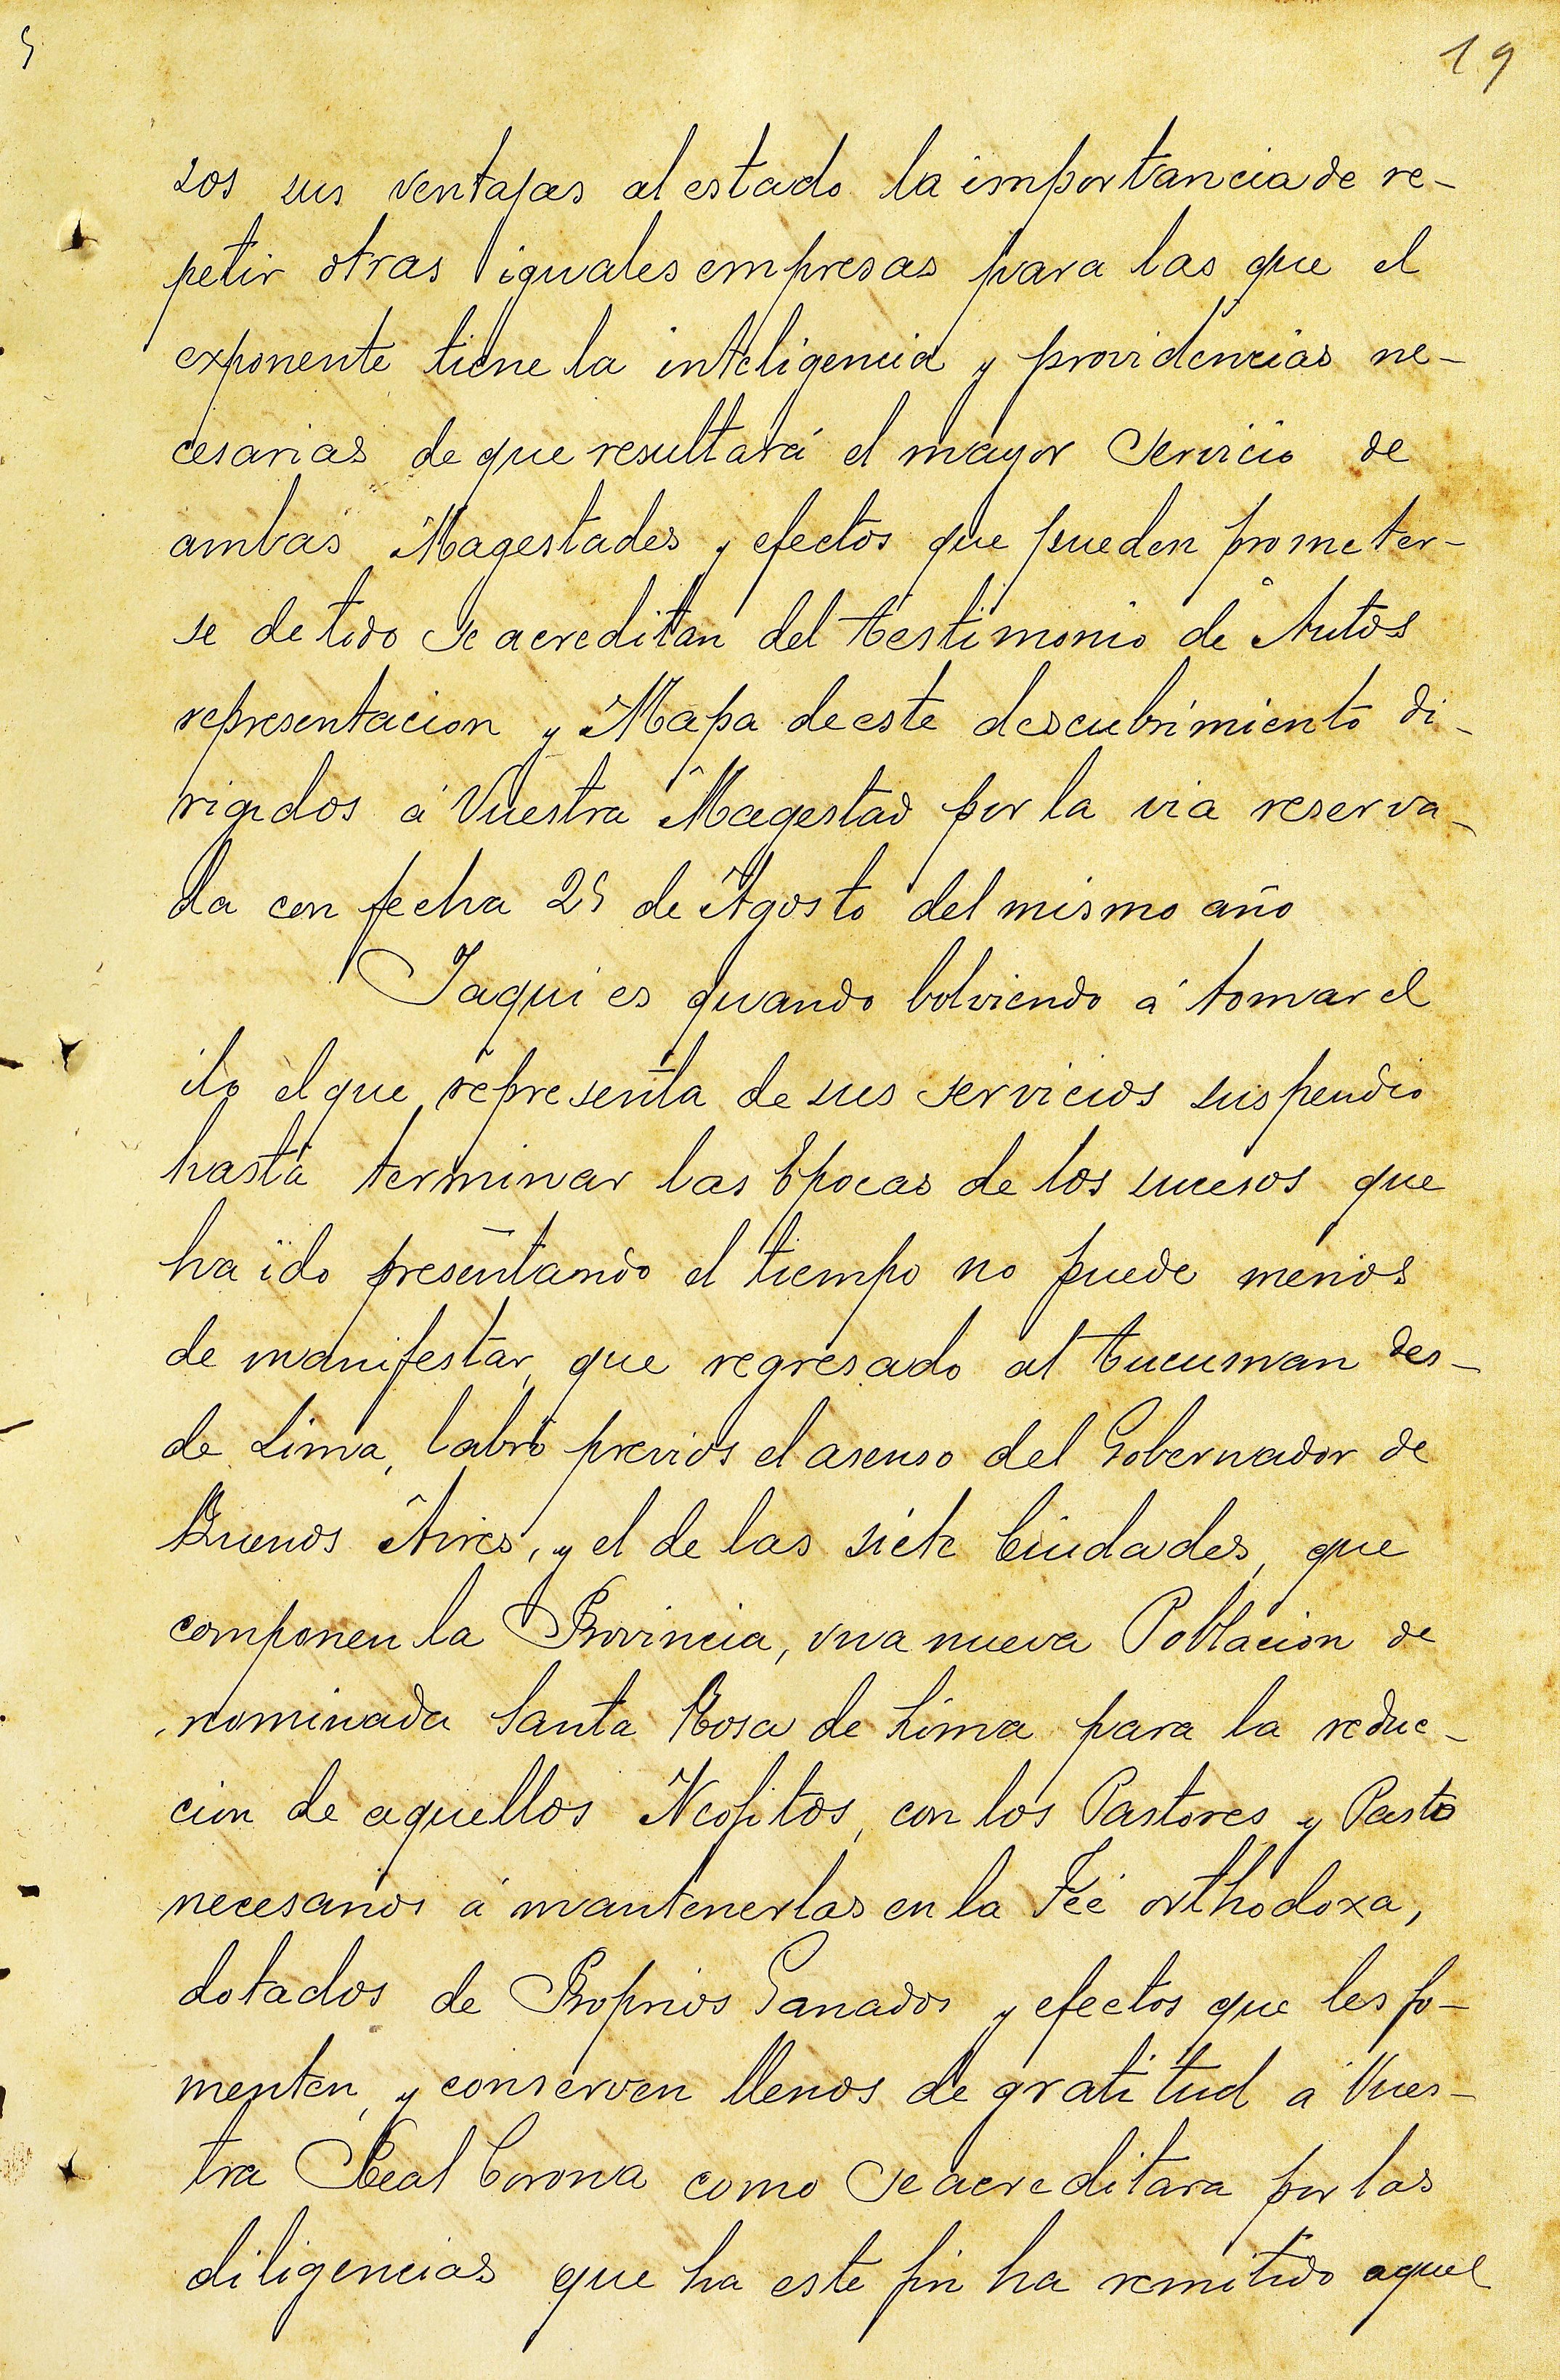 19
sos sus ventajas al estado la importancia de re-
petir otras iguales empresas para las que el
exponente tiene la inteligencia y providencias ne-
cesarias de que resultará el mayor Servicio de
ambas Magestades y efectos que pueden prometer-
se de todo se acreditan del testimonio de Autos
representacion y Mapa de este descubrimiento di-
rigidos á Vuestra Magestad por la via reserva-
da con fecha 25 de Agosto del mismo año
Iaqui es quando bolviendo á tomar el
ilo el que representa de sus servicios suspendio
hasta terminar las Epocas de los sucesos que
ha ido presentando el tiempo no puede menos
de manifestar, que regresado al tucuman des-
de Lima, labró previos el asenso del Gobernador de
Buenos Aires, y el de las siete Ciudades, que
componen la Provincia, una nueva Poblacion de
nominada Santa Rosa de Lima para la reduc-
cion de aquellos Neofitos, con los Pastores y Pasto
necesarios á mantenerlas en la Feé orthodoxa,
dotados de Proprios Ganados y efectos que les fo-
menten, y conserven llenos de gratitud á Vues-
tra Real Corona como se acreditara por las
diligencias que ha este fin ha remitido aquel